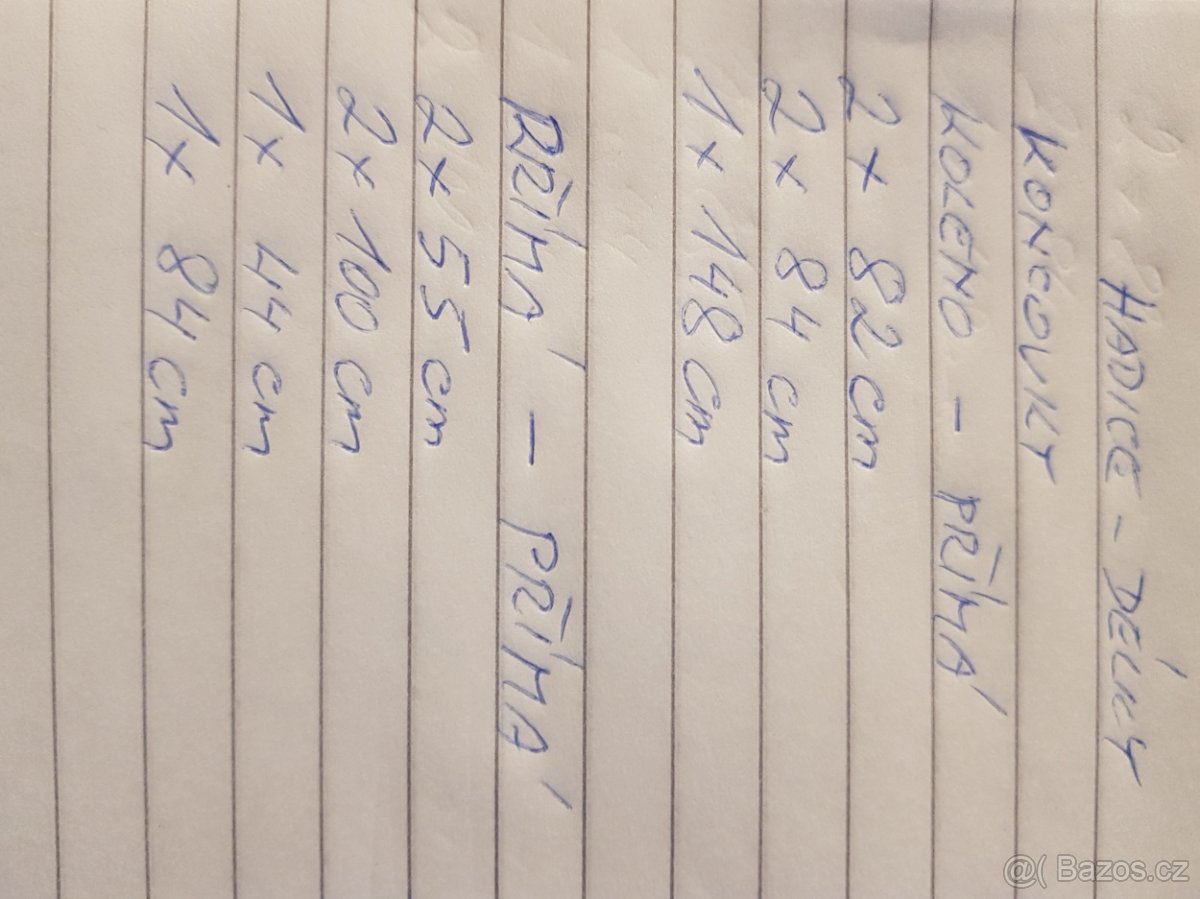 HADICE - DÉLKY
KONCOVKY
KOLENO - PŘÍMÁ
2x 82 cm
2x 84 cm
1x 148 cm
PŘÍMÁ - PŘÍMÁ
2x 55 cm
2x 100 cm
1x 44 cm
1x 84 cm
@( Bazos.cz